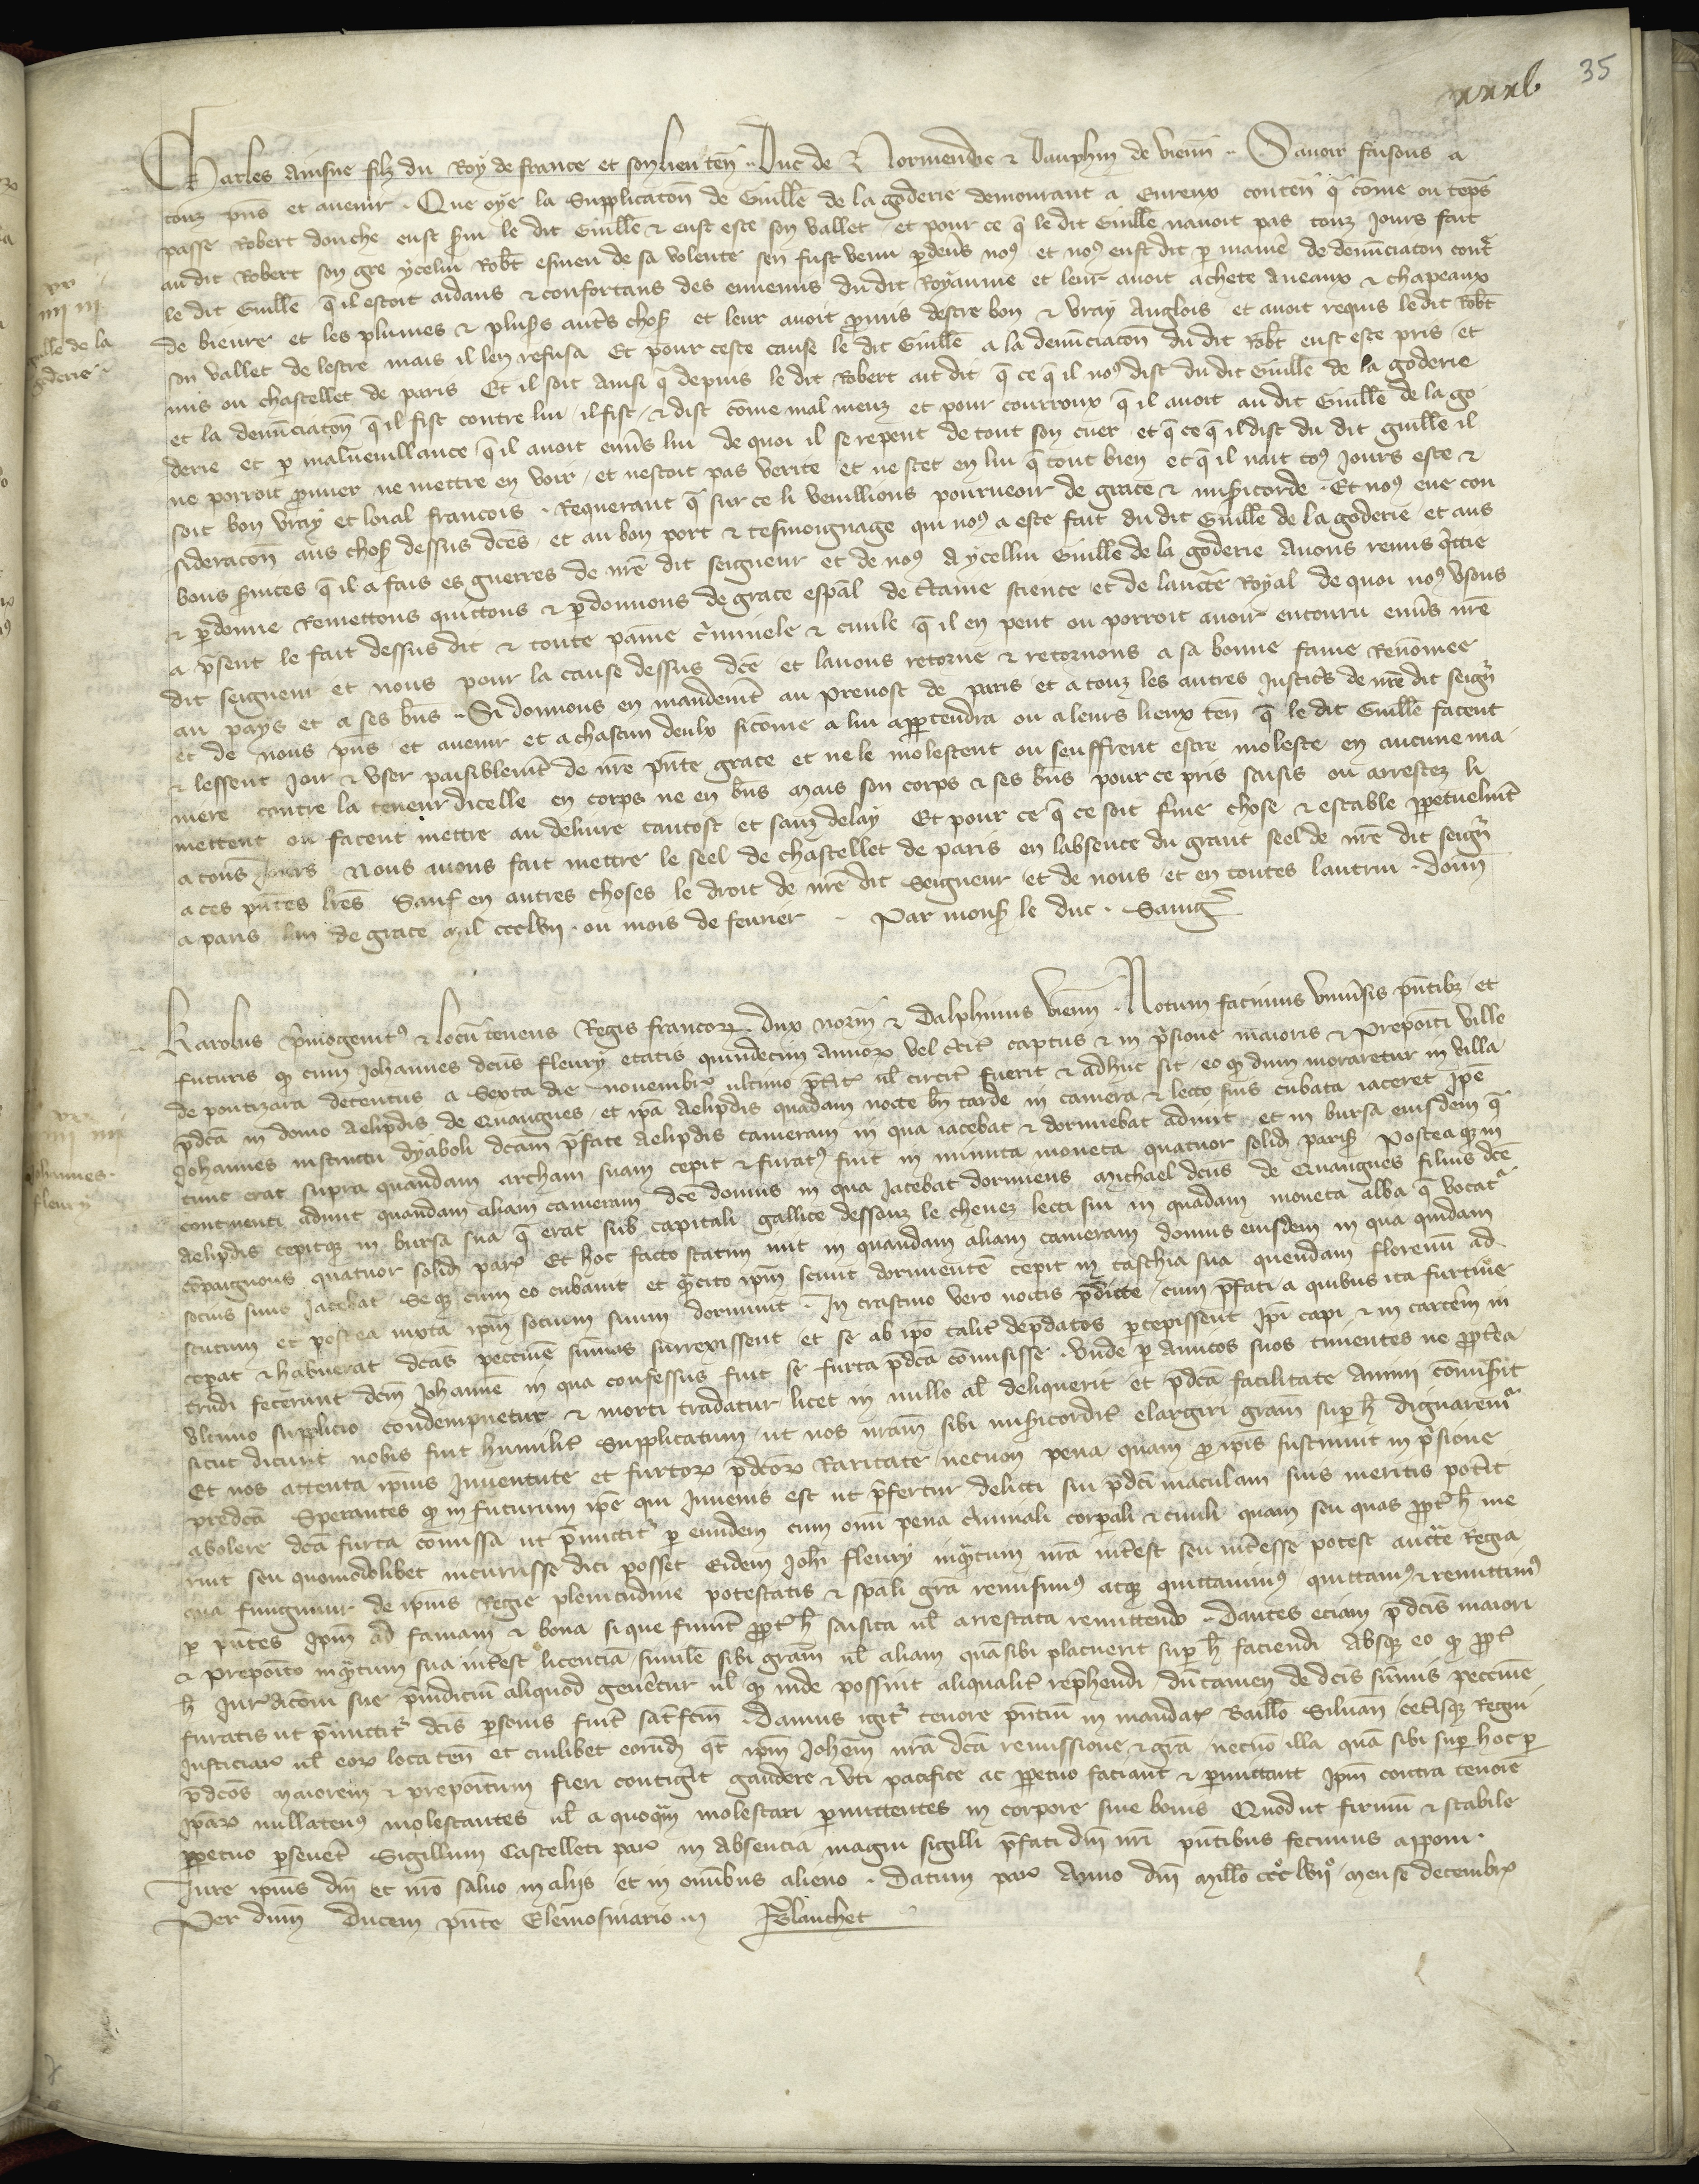 xxxv 35
Charles ainsne filz du Roy de france et son lieuten̄ Duc de Normendie & Dauphin de vienn̄ Sauoir faisons a
touz pn̄s et auenir Que oye la Supplicacōn de Guill̄e de la goderie demourant a Eureux conten̄ q̄ cōme ou tēps
passe Robert douche eust s̄ui le dit Guill̄e & eust este son vallet et pour ce q̄ le dit Guill̄e nauoit pas touz Jours fait
au dit Robert son gre ycelui Rob̄t esmeu de sa volente sen fust venu p̄deūs noꝯ et noꝯ eust dit p̄ maniē de denūciacōn cont̄
le dit Guill̄e q̄ il estoit aidans & confortans des ennemis du dit Royaume et leur auoit achete aneaux & chapeaux
de bieure et les plumes & plus̄s aut̄s chos̄ et leur auoit p̄mis destre bon & vray Anglois et auoit requis le dit Rob̄t
son vallet de lestre mais il len refusa Et pour ceste cause le dit Guill̄e a la denūciacōn du dit Rob̄t eust este pris et
mis ou chastellet de paris Et il soit ainsi q̄ depuis le dit Robert ait dit q̄ ce q̄ il noꝯ dist du dit Guill̄e de la goderie
et la denūciacōn q̄ il fist contre lui il fist & dist cōme mal meuz et pour courroux q̄ il auoit au dit Guill̄e de la go
derie et p̄ maluueillance q̄ il auoit enūs lui de quoi il se repent de tout son cuer et q̄ ce q̄ il dist du dit guill̄e il
ne porroit p̄uuer ne mettre en voir et nestoit pas verite et ne scet en lui q̄ tout bien et q̄ il nait toꝯ Jours este &
soit bon vray et loial francois Requerant q̄ sur ce li veuillions pourueoir de grace & mis̄icorde Et noꝯ eue con
sideracōn aus chos̄ dessus dc̄es et au bon port & tesmoignage qui noꝯ a este fait du dit Guill̄e de la goderie et aus
bons s̄uices q̄ il a fais es guerres de nr̄e dit seigneur et de noꝯ A ycellui Guill̄e de la goderie Auons remis q̄ttie
& p̄donne Remettons quittons & p̄donnons de grace esp̄al de c̄taine science et de lauct̄e Royal de quoi noꝯ vsons
a p̄sent le fait dessus dit & toute paine c̄minele & ciuile q̄ il en peut ou porroit auoir encouru enūs nr̄e
dit seigneur et nous pour la cause dessus dc̄e et lauons retorne & retornons a sa bonne fame Renōmee
au pays et a ses bn̄s Si donnons en mandem̄t au preuost de paris et a touz les autres Justic̄s de nr̄e dit seign̄
et de nous pn̄s et auenir et a chascun deulx sicōme a lui app̄tendra ou a leurs lieux ten̄ q̄ le dit Guill̄e facent
& lessent Joir & vser paisiblem̄t de nr̄e pn̄te grace et ne le molestent ou seuffrent estre moleste en aucune ma
niere contre la teneur dicelle en corps ne en bn̄s Mais son corps & ses bn̄s pour ce pris saisis ou arrestez li
mettent ou facent mettre au deliure tantost et sanz delay Et pour ce q̄ ce soit f̄me chose & estable p̄petuelm̄t
a touz Jours Nous auons fait mettre le seel de chastellet de paris en labsence du grant seel de nr̄e dit seign̄
a ces pn̄tes lr̄es Sauf en autres choses le droit de nr̄e dit Seigneur et de nous et en toutes lautrui Donn̄
a paris lan de grace mil ccclvii ou mois de feurier Par mons̄ le duc
guill̄e de la
goderie
Karolus p̄mogenitꝯ & locū tenens Regis francoꝝ dux norm̄ & Dalphinus vienn̄ Notum facimus vniūsis pn̄tibꝫ et
futuris ꝙ cum Johannes dc̄us fleury etatis quindecim Annoꝝ vel c̄cit̄ captus & in p̄sione maioris & Prepoīti ville
de pontizara detentus a Sexta die nouembr̄ ultimo p̄t̄it̄ ul̄ circit̄ fuerit & adhuc sit eo ꝙ dum moraretur in villa
p̄dc̄a in domo Aelipdis de Quangues et ip̄a Aelipdis quadam nocte bn̄ tarde in camera & lecto suis cubata iaceret Ip̄e
Johannes instinctu dyaboli dc̄am p̄fate Aelipdis cameram in qua iacebat & dormiebat adiuit et in bursa eiusdem q̄
tunc erat supra quandam archam suam cepit & furatꝯ fuit in minuta moneta quatuor solid̄ paris̄ Posteaqꝫ in
continenti adiuit quandam aliam cameram dc̄e domus in qua Jacebat dormiens Michael dc̄us de Quangues filius dc̄e
Aelipdis cepitqꝫ in bursa sua q̄ erat sub capitali gallice dessouz le cheuez lecti sui in quadam moneta alba q̄ vocat̄
cōpaignons quatuor solid̄ par̄ Et hoc facto statim iuit in quandam aliam cameram domus eiusdem in qua quidam
socius suus Jacebat Se qꝫ cum eo cubauit et q̄cito ip̄m sciuit dormientē cepit in taschia sua quendam florenū ad
scutum et postea iuxta ip̄m socium suum dormiuit In crastino vero noctis p̄dicte cum p̄fati a quibus ita furtiue
cepat & habuerat dc̄as peccunie sūmas surrexissent et se ab ip̄o talit̄ dep̄datos p̄cepissent Ip̄i capi & in carcēm in
trudi fecerunt dc̄m Johannē in qua confessus fuit se furta p̄dc̄a cōmisisse Vnde p̄ Amicos suos timentes ne p̄pt̄ea
vltimo supplicio condempnetur & morti tradatur licet in nullo al̄ deliquerit et p̄dc̄a facilitate animi cōmis̄it
sicut dicunt nobis fuit humilit̄ Supplicatum ut nos nr̄am sibi mis̄icordit̄ elargiri grām sup̄ h̄ dignarem̄
Et nos attenta ip̄ius Juuentute et furtoꝝ p̄dc̄oꝝ Raritate necnon pena quam p̄ ip̄is sustinuit in p̄sione
predc̄a Sperantes ꝙ in futurum ip̄e qui Juuenis est ut p̄fertur delicti sui p̄dc̄i maculam suis meritis pot̄it
abolere dc̄a furta cōmissa ut p̄mittit̄ p̄ eundem cum om̄i pena c̄iminali corp̄ali & ciuili quam seu quas p̄pt̄ h̄ ine
rit seu quomodolibet incurrisse dici posset Eidem Joh̄i fleury inq̄tum nr̄a int̄est seu int̄esse potest auct̄e Regia
qua fungimur de ip̄ius Regie plenitudine potestatis & sp̄ali grā remisimꝯ atqꝫ quittauimꝯ quittamꝯ & remittimꝯ
p̄ pn̄tes Ip̄m ad famam & bona si que fuīnt p̄pt̄ h̄ saisita ul̄ arrestata remittendo Dantes eciam p̄dc̄is maiori
& preposito inq̄tum sua int̄est licenciā similē sibi grām ul̄ aliam quā sibi placuerit sup̄ h̄ faciendi Absqꝫ eo ꝙ p̄pt̄
h̄ Jur̄dicōni sue p̄iudiciū aliquod genēetur ul̄ ꝙ inde possint aliqualit̄ rep̄hendi dūtamen de dc̄is sūmis peccunie
furatis ut p̄mittit̄ dc̄is p̄sonis fuīt satīfc̄m Damus igit̄ tenore pn̄tiū in mandat̄ Baill̄o Siluan̄ cet̄isqꝫ Regni
Justiciar̄ ul̄ eoꝝ loca ten̄ et cuilibet eorūd̄ q̄t̄ ip̄m Joh̄em nr̄a dc̄a remissione & grā necnō illa quā sibi sup̄ hoc p̄
p̄dc̄os Maiorem & prepoītum fieri contigit gaudere & vti pacifice ac p̄petuo faciant & p̄mittant Ip̄m contra tenorē
ip̄aꝝ nullatenꝯ molestantes ul̄ a quoq̄m molestari p̄mittentes in corpore siue bonis Quod ut firmū & stabile
p̄petuo p̄seueret Sigillum Castelleti par̄ in absencia magni sigilli p̄fati dn̄i nr̄i pn̄tibus fecimus apponi
Jure ip̄ius dn̄i et nr̄o saluo in aliis et in om̄ibus alieno Datum par̄ Anno dn̄i mill̄o cccͦ lviiͦ mense decembr̄
Per dn̄m Ducem pn̄te Elemosinario Blanchet
Johannes
fleury